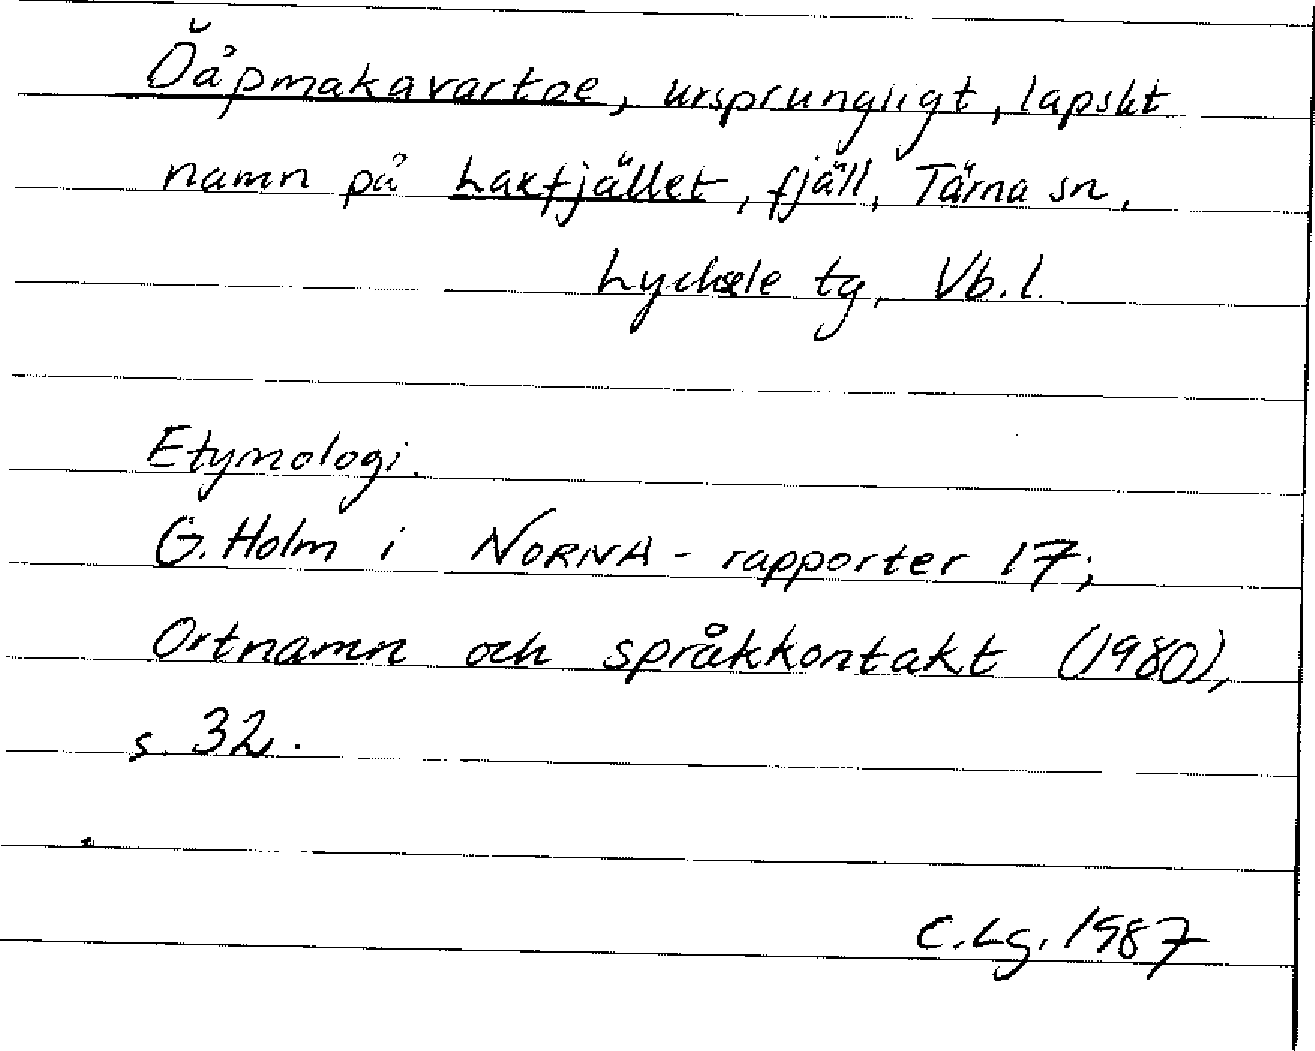 Ŏåpmakavartoe, ursprungligt, lapskt
namn på Laxfjället, fjäll, Tärna sn,
Lycksele tg, Vb.l.
Etymologi.
G. Holm i NORNA-rapporter 17;
Ortnamn och språkkontakt (1980),
s. 32.
C.Lg. 1987